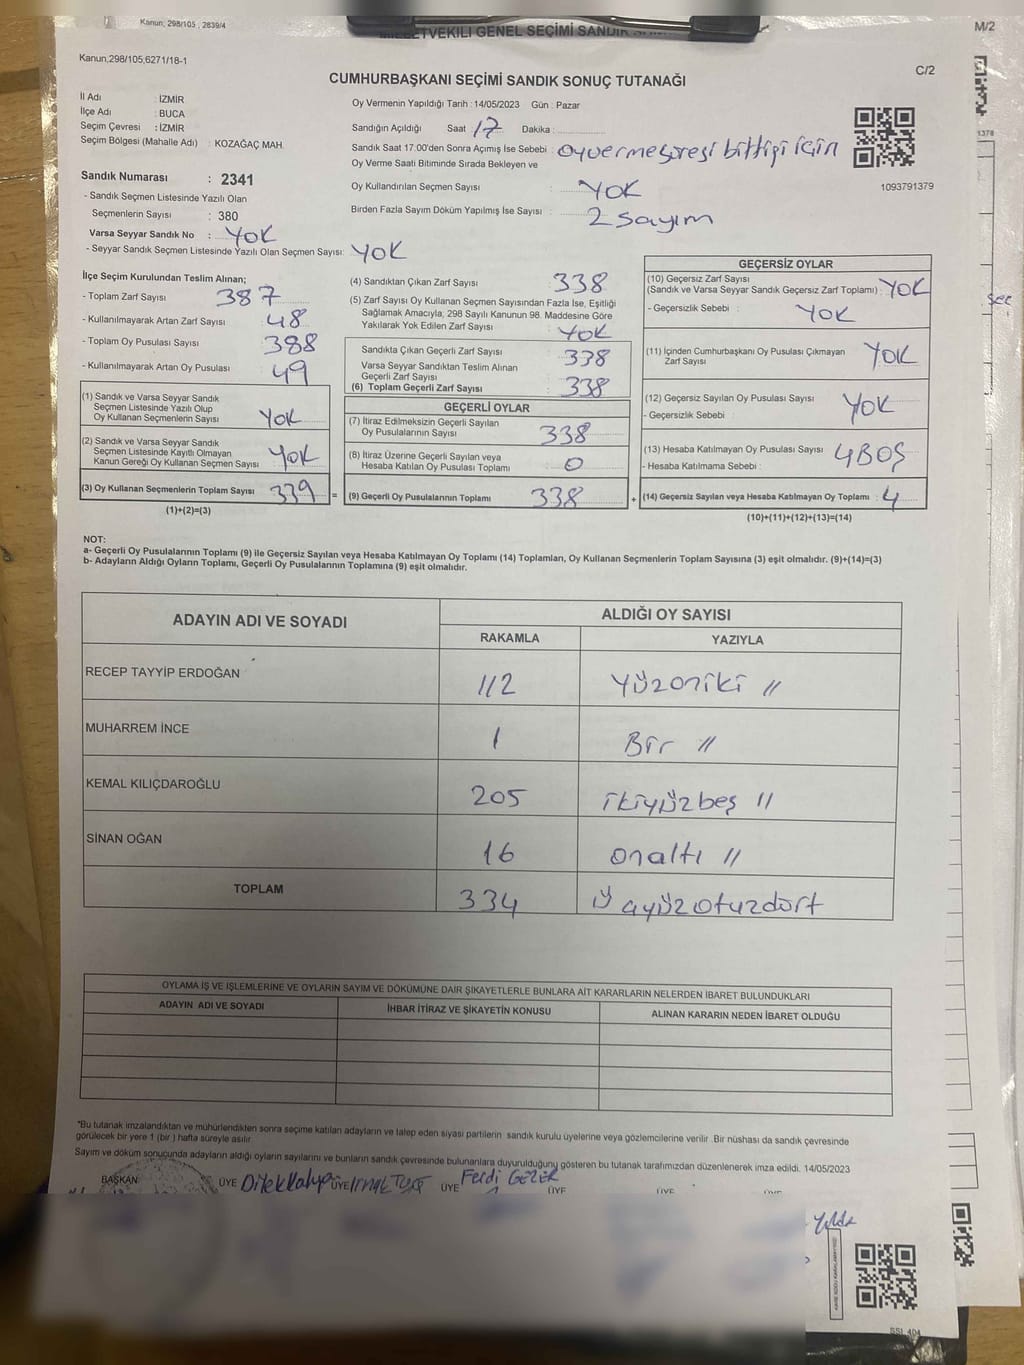 Kanun, 298/105 , 2839/4
M/2
Kanun,298/105,6271/18-1
C/2
CUMHURBAŞKANI SEÇİMİ SANDIK SONUÇ TUTANAĞI
İl Adı : İZMİR
İlçe Adı : BUCA
Seçim Çevresi : İZMİR
Seçim Bölgesi (Mahalle Adı) : KOZAĞAÇ MAH.
Oy Vermenin Yapıldığı Tarih : 14/05/2023 Gün : Pazar
Sandığın Açıldığı Saat 17 Dakika :
Sandık Saat 17:00'den Sonra Açımış İse Sebebi : oyverme süresi bittiği için
Oy Verme Saati Bitiminde Sırada Bekleyen ve
Oy Kullandırılan Seçmen Sayısı : YOK
Birden Fazla Sayım Döküm Yapılmış İse Sayısı : 2 sayım
1093791379
Sandık Numarası : 2341
- Sandık Seçmen Listesinde Yazılı Olan
Seçmenlerin Sayısı : 380
Varsa Seyyar Sandık No : YOK
- Seyyar Sandık Seçmen Listesinde Yazılı Olan Seçmen Sayısı: YOK
İlçe Seçim Kurulundan Teslim Alınan;
- Toplam Zarf Sayısı 387
- Kullanılmayarak Artan Zarf Sayısı : 48
- Toplam Oy Pusulası Sayısı : 388
- Kullanılmayarak Artan Oy Pusulası : 49
(1) Sandık ve Varsa Seyyar Sandık
Seçmen Listesinde Yazılı Olup
Oy Kullanan Seçmenlerin Sayısı : YOK
(2) Sandık ve Varsa Seyyar Sandık
Seçmen Listesinde Kayıtlı Olmayan
Kanun Gereği Oy Kullanan Seçmen Sayısı : YOK
(3) Oy Kullanan Seçmenlerin Toplam Sayısı : 339
(1)+(2)=(3)
(4) Sandıktan Çıkan Zarf Sayısı : 338
(5) Zarf Sayısı Oy Kullanan Seçmen Sayısından Fazla İse, Eşitliği
Sağlamak Amacıyla, 298 Sayılı Kanunun 98. Maddesine Göre
Yakılarak Yok Edilen Zarf Sayısı : YOK
Sandıkta Çıkan Geçerli Zarf Sayısı : 338
Varsa Seyyar Sandıktan Teslim Alınan
Geçerli Zarf Sayısı :
(6) Toplam Geçerli Zarf Sayısı : 338
GEÇERLİ OYLAR
(7) İtiraz Edilmeksizin Geçerli Sayılan
Oy Pusulalarının Sayısı : 338
(8) İtiraz Üzerine Geçerli Sayılan veya
Hesaba Katılan Oy Pusulası Toplamı : 0
= (9) Geçerli Oy Pusulalarının Toplamı : 338
GEÇERSİZ OYLAR
(10) Geçersiz Zarf Sayısı
(Sandık ve Varsa Seyyar Sandık Geçersiz Zarf Toplamı) : YOK
- Geçersizlik Sebebi : YOK
(11) İçinden Cumhurbaşkanı Oy Pusulası Çıkmayan
Zarf Sayısı : YOK
(12) Geçersiz Sayılan Oy Pusulası Sayısı : YOK
- Geçersizlik Sebebi :
(13) Hesaba Katılmayan Oy Pusulası Sayısı : 4 BOŞ
- Hesaba Katılmama Sebebi :
+ (14) Geçersiz Sayılan veya Hesaba Katılmayan Oy Toplamı : 4
(10)+(11)+(12)+(13)=(14)
NOT:
a- Geçerli Oy Pusulalarının Toplamı (9) ile Geçersiz Sayılan veya Hesaba Katılmayan Oy Toplamı (14) Toplamları, Oy Kullanan Seçmenlerin Toplam Sayısına (3) eşit olmalıdır. (9)+(14)=(3)
b- Adayların Aldığı Oyların Toplamı, Geçerli Oy Pusulalarının Toplamına (9) eşit olmalıdır.
ADAYIN ADI VE SOYADI ALDIĞI OY SAYISI
RAKAMLA YAZIYLA
RECEP TAYYİP ERDOĞAN 112 Yüzoniki //
MUHARREM İNCE 1 Bir //
KEMAL KILIÇDAROĞLU 205 ikiyüzbeş //
SİNAN OĞAN 16 onaltı //
TOPLAM 334
OYLAMA İŞ VE İŞLEMLERİNE VE OYLARIN SAYIM VE DÖKÜMÜNE DAİR ŞİKAYETLERLE BUNLARA AİT KARARLARIN NELERDEN İBARET BULUNDUKLARI
ADAYIN ADI VE SOYADI İHBAR İTİRAZ VE ŞİKAYETİN KONUSU ALINAN KARARIN NEDEN İBARET OLDUĞU
"Bu tutanak imzalandıktan ve mühürlendikten sonra seçime katılan adayların ve talep eden siyasi partilerin sandık kurulu üyelerine veya gözlemcilerine verilir. Bir nüshası da sandık çevresinde
görülecek bir yere 1 (bir ) hafta süreyle asılır.
Sayım ve döküm sonucunda adayların aldığı oyların sayılarını ve bunların sandık çevresinde bulunanlara duyurulduğunu gösteren bu tutanak tarafımızdan düzenlenerek imza edildi. 14/05/2023
BAŞKAN ÜYE ÜYE ÜYE Ferdi GEZER ÜYE ÜYE